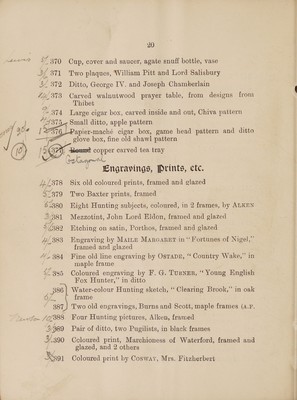 20
370 Cup, cover and saucer, agate snuff bottle, vase
371 Two plaques, William Pitt and Lord Salisbury
372 Ditto, George IV. and Joseph Chamberlain
373 Carved walnutwood prayer table, from designs from
Thibet
374 Large cigar box, carved inside and out, Chiva pattern
375 Small ditto, apple pattern
376 Papier-maché cigar box, game head pattern and ditto
glove box, fine old shawl pattern
377 Round copper carved tea tray
Octagonal
Engravings, Prints, etc.
378 Six old coloured prints, framed and glazed
379 Two Baxter prints, framed
380 Eight Hunting subjects, coloured, in 2 frames, by ALKEN
381 Mezzotint, John Lord Eldon, framed and glazed
382 Etching on satin, Porthos, framed and glazed
383 Engraving by MAILE MARGARET in "Fortunes of Nigel,"
framed and glazed
384 Fine old line engraving by OSTADE, "Country Wake," in
maple frame
385 Coloured engraving by F. G. TURNER, "Young English
Fox Hunter," in ditto
386 Water-colour Hunting sketch, "Clearing Brook," in oak
frame
387 Two old engravings, Burns and Scott, maple frames (A.P.
388 Four Hunting pictures, Alken, framed
389 Pair of ditto, two Pugilists, in black frames
390 Coloured print, Marchioness of Waterford, framed and
glazed, and 2 others
391 Coloured print by CONWAY, Mrs. Fitzherbert